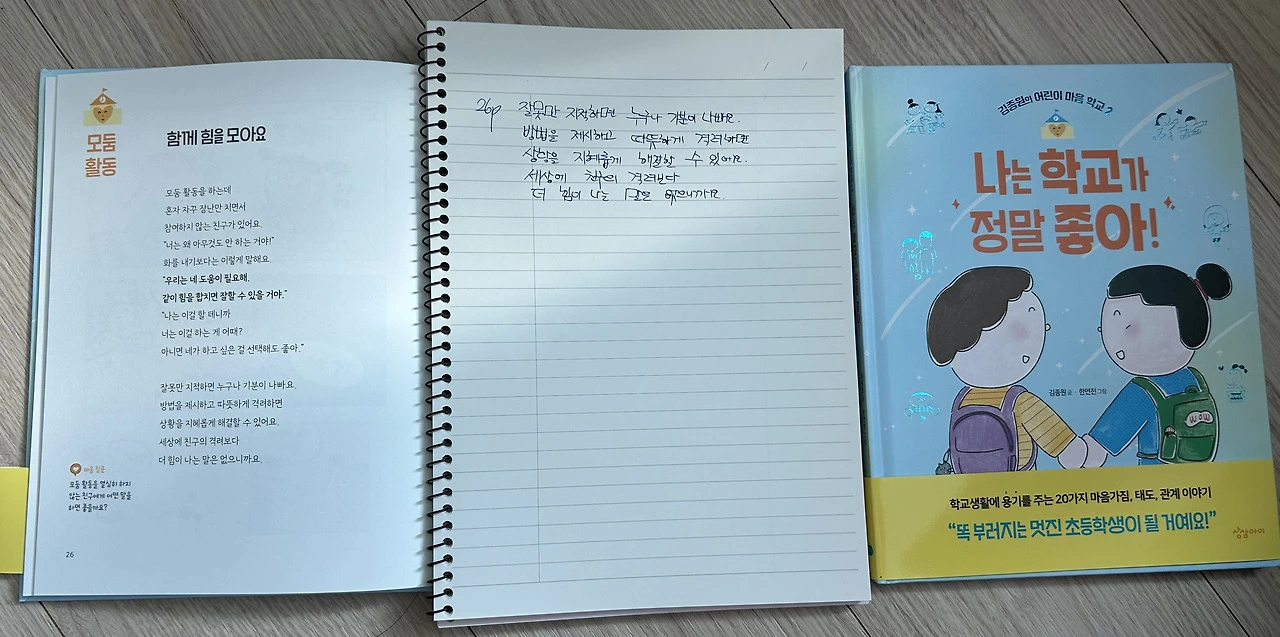 모둠
활동
함께 힘을 모아요
모둠 활동을 하는데
혼자 자꾸 장난만 치면서
참여하지 않는 친구가 있어요.
"너는 왜 아무것도 안 하는 거야!"
화를 내기보다는 이렇게 말해요.
"우리는 네 도움이 필요해.
같이 힘을 합치면 잘할 수 있을 거야."
"나는 이걸 할 테니까
너는 이걸 하는 게 어때?
아니면 네가 하고 싶은 걸 선택해도 좋아."
잘못만 지적하면 누구나 기분이 나빠요.
방법을 제시하고 따뜻하게 격려하면
상황을 지혜롭게 해결할 수 있어요.
세상에 친구의 격려보다
더 힘이 나는 말은 없으니까요.
마음 질문
모둠 활동을 열심히 하지
않는 친구에게 어떤 말을
하면 좋을까요?
26
/ /
26p 잘못만 지적하면 누구나 기분이 나빠요.
방법을 제시하고 따뜻하게 격려하면
상황을 지혜롭게 해결할 수 있어요.
세상에 친구의 격려보다
더 힘이 나는 말은 없으니까요.
김종원의 어린이 마음 학교 2
나는 학교가
정말 좋아!
김종원 글 · 한연진 그림
WOW
학교생활에 용기를 주는 20가지 마음가짐, 태도, 관계 이야기
"똑 부러지는 멋진 초등학생이 될 거예요!"
상상아이